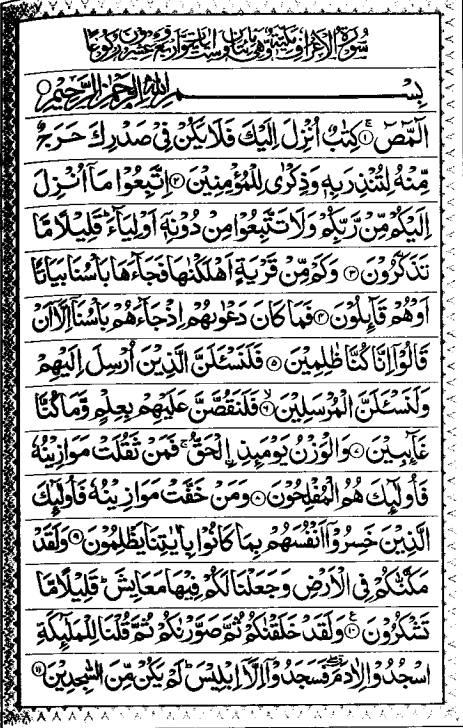 سُوْرَةُ الْاَعْرَافِ مَكِّيَّةٌ وَّهِيَ مِائَتَانِ وَسِتُّ اٰيَاتٍ وَّاَرْبَعٌ وَّعِشْرُوْنَ رُكُوْعًا
بِسْمِ اللّٰهِ الرَّحْمٰنِ الرَّحِيْمِ
الٓمّٓصٓ ۱ كِتٰبٌ اُنْزِلَ اِلَيْكَ فَلَا يَكُنْ فِيْ صَدْرِكَ حَرَجٌ
مِّنْهُ لِتُنْذِرَ بِهٖ وَذِكْرٰى لِلْمُؤْمِنِيْنَ ۲ اِتَّبِعُوْا مَاۤ اُنْزِلَ
اِلَيْكُمْ مِّنْ رَّبِّكُمْ وَلَا تَتَّبِعُوْا مِنْ دُوْنِهٖۤ اَوْلِيَآءَ ؕ قَلِيْلًا مَّا
تَذَكَّرُوْنَ ۳ وَكَمْ مِّنْ قَرْيَةٍ اَهْلَكْنٰهَا فَجَآءَهَا بَاْسُنَا بَيَاتًا
اَوْ هُمْ قَآئِلُوْنَ ۴ فَمَا كَانَ دَعْوٰىهُمْ اِذْ جَآءَهُمْ بَاْسُنَاۤ اِلَّاۤ اَنْ
قَالُوْۤا اِنَّا كُنَّا ظٰلِمِيْنَ ۵ فَلَنَسْـَٔلَنَّ الَّذِيْنَ اُرْسِلَ اِلَيْهِمْ
وَلَنَسْـَٔلَنَّ الْمُرْسَلِيْنَ ۶ فَلَنَقُصَّنَّ عَلَيْهِمْ بِعِلْمٍ وَّمَا كُنَّا
غَآئِبِيْنَ ۷ وَالْوَزْنُ يَوْمَئِذِ ࣙالْحَقُّ ۚ فَمَنْ ثَقُلَتْ مَوَازِيْنُهٗ
فَاُولٰٓئِكَ هُمُ الْمُفْلِحُوْنَ ۸ وَمَنْ خَفَّتْ مَوَازِيْنُهٗ فَاُولٰٓئِكَ
الَّذِيْنَ خَسِرُوْۤا اَنْفُسَهُمْ بِمَا كَانُوْا بِاٰيٰتِنَا يَظْلِمُوْنَ ۹ وَلَقَدْ
مَكَّنّٰكُمْ فِي الْاَرْضِ وَجَعَلْنَا لَكُمْ فِيْهَا مَعَايِشَ ؕ قَلِيْلًا مَّا
تَشْكُرُوْنَ ۱۰ وَلَقَدْ خَلَقْنٰكُمْ ثُمَّ صَوَّرْنٰكُمْ ثُمَّ قُلْنَا لِلْمَلٰٓئِكَةِ
اسْجُدُوْا لِاٰدَمَ ۖ فَسَجَدُوْۤا اِلَّاۤ اِبْلِيْسَ ؕ لَمْ يَكُنْ مِّنَ السّٰجِدِيْنَ ۱۱